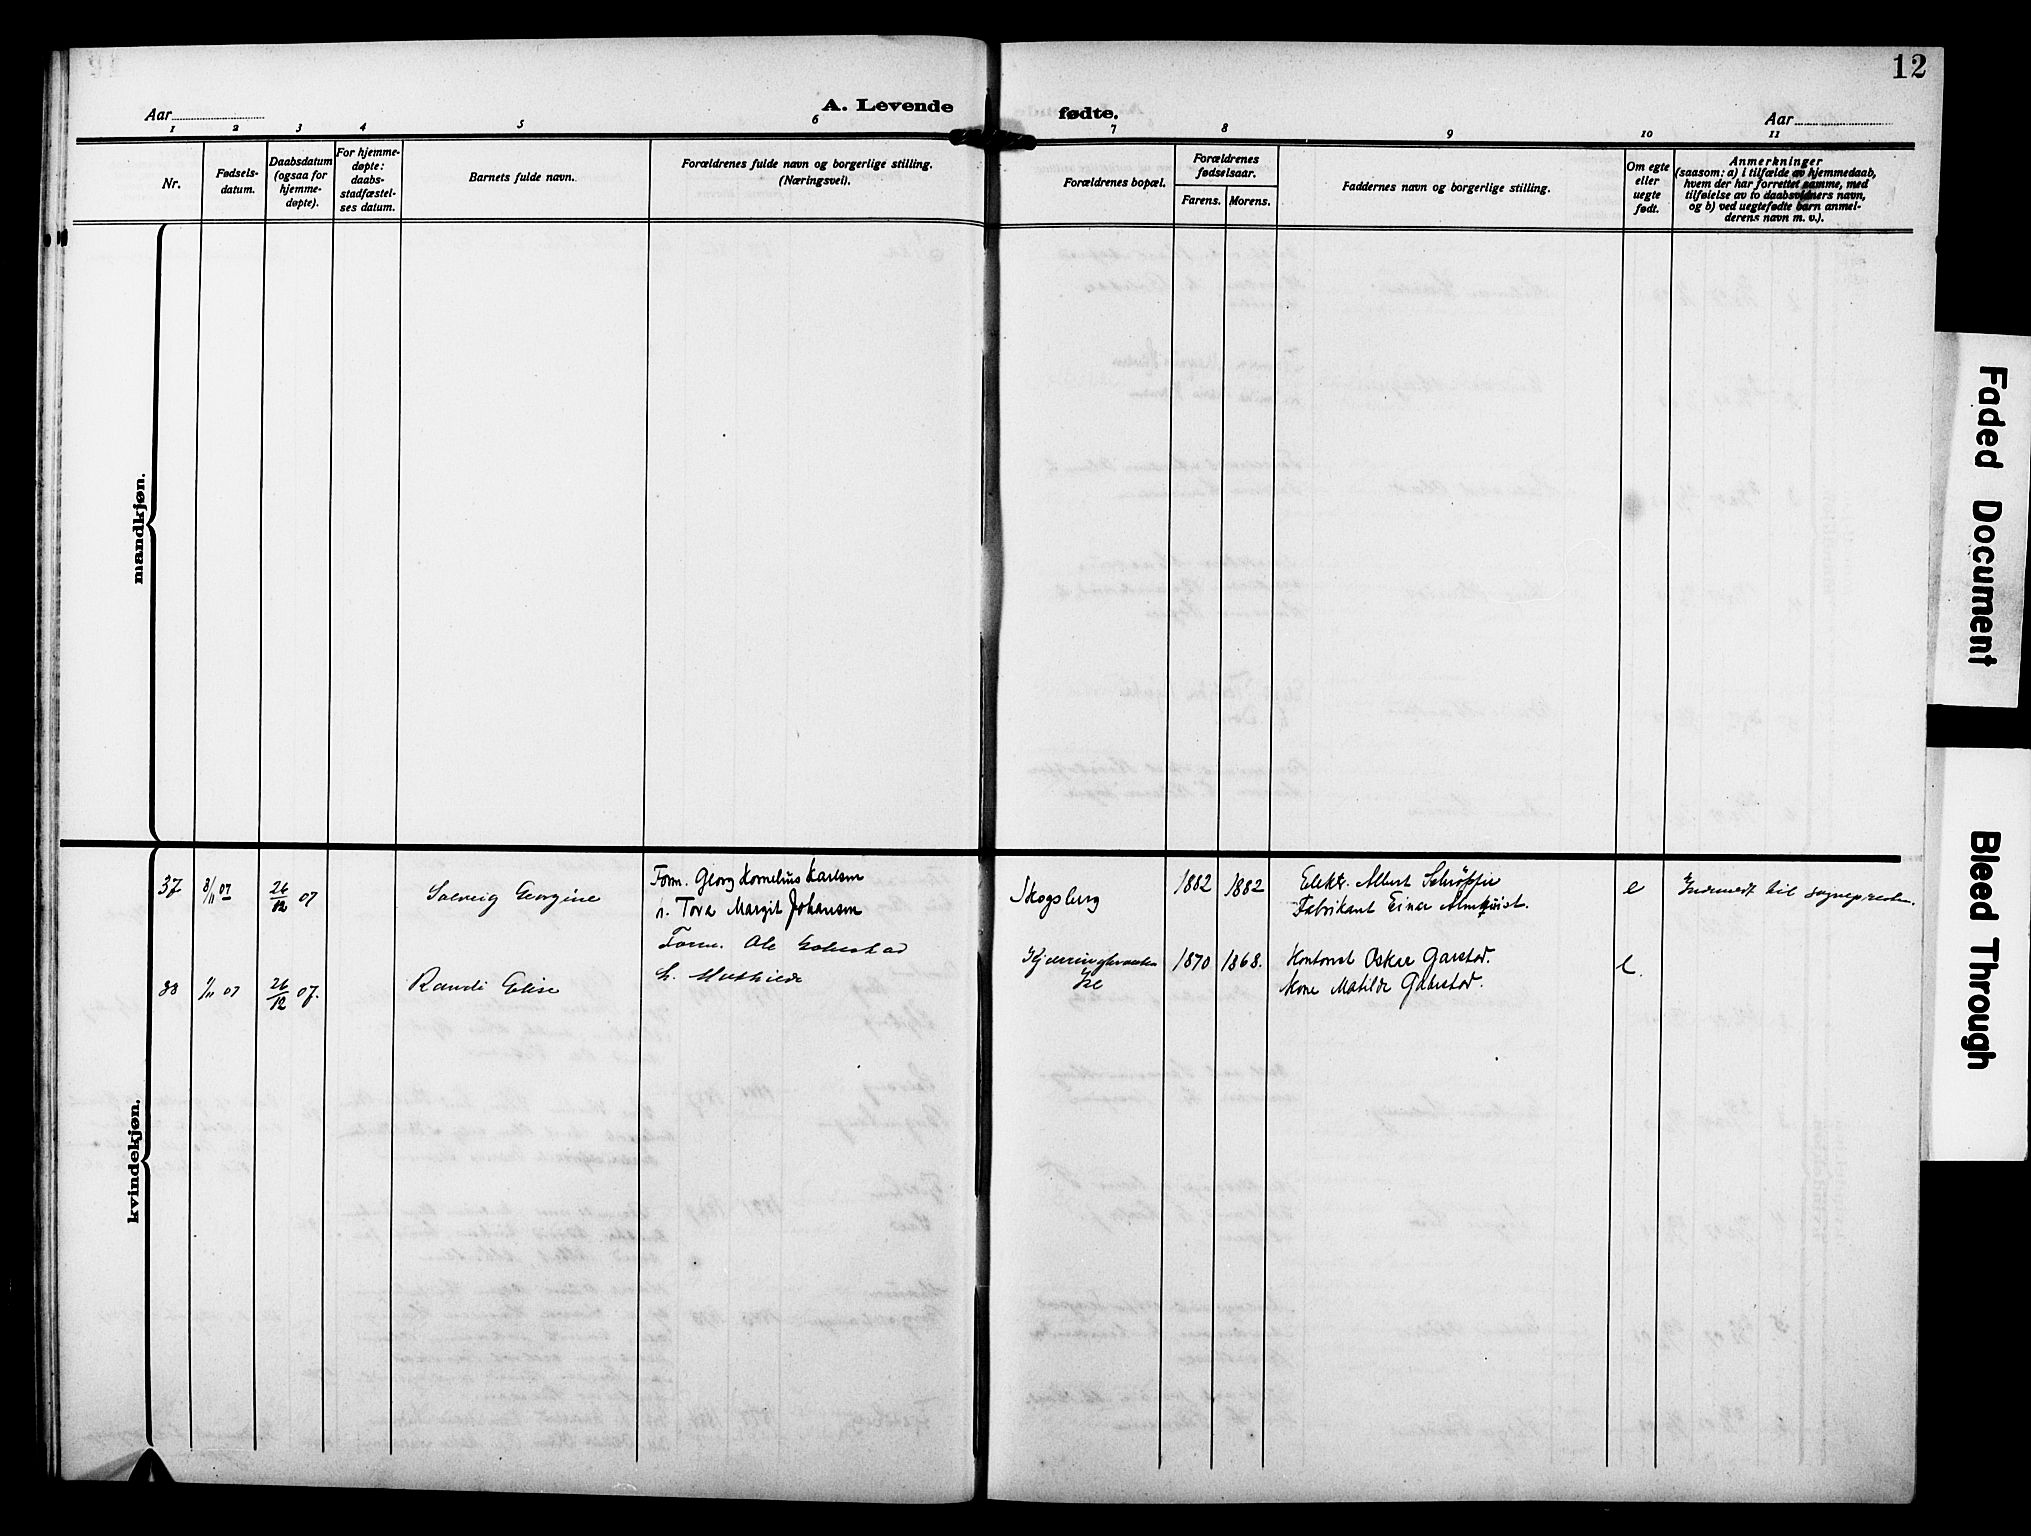 12
A. Levende fødte.
Aar
Aar
1 2 3 4 5 6 7 8 9 10 11
Nr.
Fødsels-
datum.
Daabsdatum
(ogsaa for
hjemme-
døpte).
For hjemme-
døpte:
daabs-
stadfæstel-
ses datum.
Barnets fulde navn.
Forældrenes fulde navn og borgerlige stilling.
(Næringsvei).
Forældrenes bopæl.
Forældrenes
fødselsaar.
Farens. Morens.
Faddernes navn og borgerlige stilling.
Om egte
eller
uegte
født.
Anmerkninger
(saasom: a) i tilfælde av hjemmedaab,
hvem der har forrettet samme, med
tilføielse av to daabsvidners navn,
og b) ved uegtefødte barn anmel-
derens navn m. v.).
mandkjøn.
kvindekjøn.
37 8/11 07 26/12 07 Solveig Georgine
Form. Georg Kornelius Karlsen
h. Tora Margit Johansen
Skogsberg 1882 1882
Elektr. Albert
Fabrikant Einar Almquist.
e Indmeldt til sognepresten.
38 9/11 07 26/12 07. Randi Elise
Form. Ole
h. Mathilde
1870 1868.
Kontorist Oskar Garstad.
Kone Matilde Gaarstad.
e.
Faded Document
Bleed Through